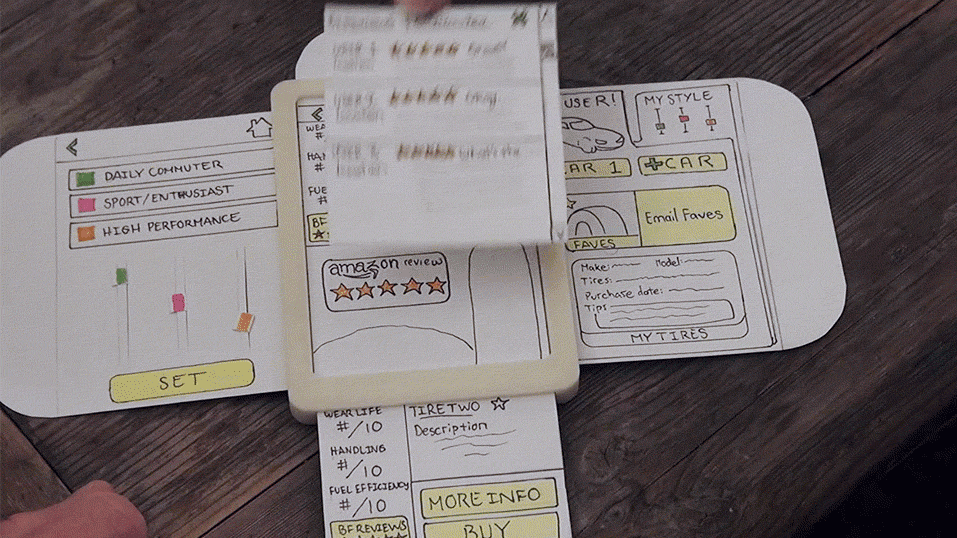 DAILY COMMUTER
SPORT/ENTHUSIAST
HIGH PERFORMANCE
SET
WEAR
#/
HAN
#
FUEL
#/
BF
amazon review
USER!
MY STYLE
CAR 1
+CAR
FAVES
Email Faves
Make: Model:
Tires:
Purchase date:
Tips
MY TIRES
WEAR LIFE
#/10
HANDLING
#/10
FUEL EFFICIENCY
#/10
BF REVIEWS
TIRE TWO
Description
MORE INFO
BUY